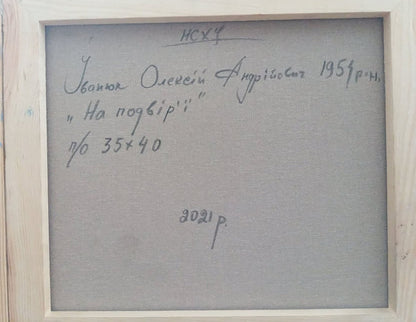 НСХУ
Іванюк Олексій Андрійович 1954 р.н.
„На подвір'ї"
п/о 35×40
2021 р.